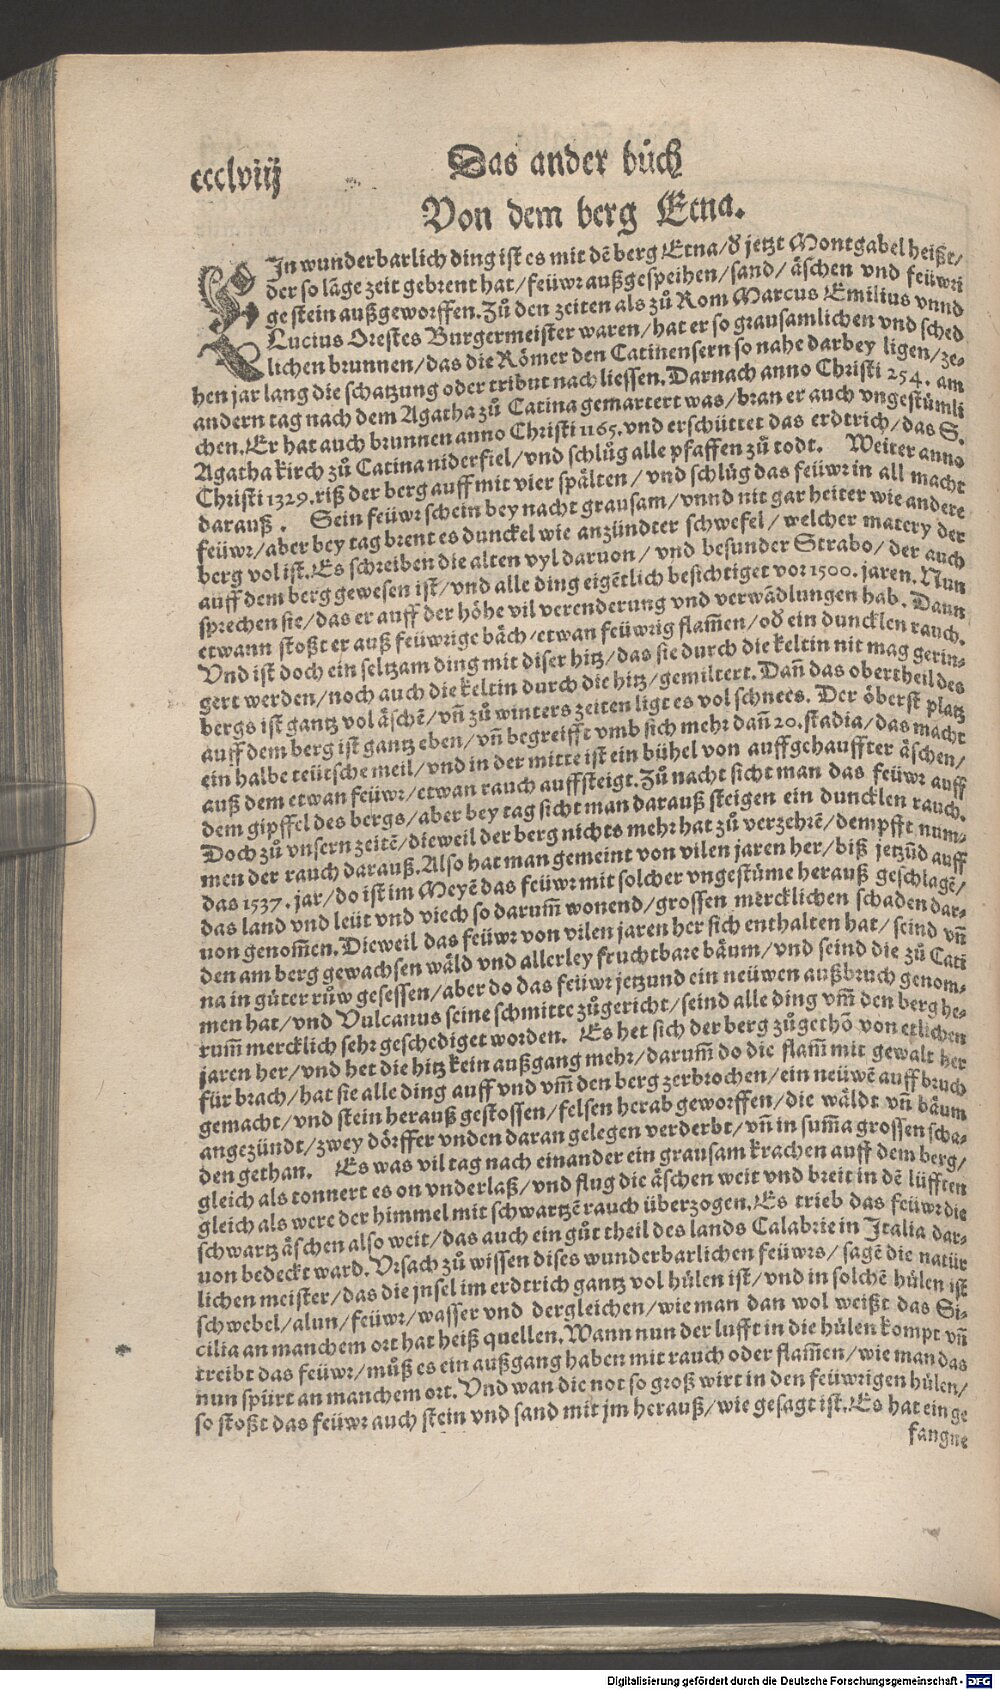 ccclviij
Das ander bůch
Von dem berg Etna.
EIn wunderbarlich ding ist es mit dẽ berg Etna/ď jetzt Montgabel heißt/
der so lãge zeit gebrent hat/feüwr außgespeihen/sand/äschen vnd feüwri
ge stein außgeworffen. Zů den zeiten als zů Rom Marcus Emilius vnnd
Lucius Orestes Burgermeister waren/hat er so grausamlichen vnd sched
lichen brunnen/das die Römer den Catinensern so nahe darbey ligen/ze-
hen jar lang die schatzung oder tribut nach liessen. Darnach anno Christi 254. am
andern tag nach dem Agatha zů Catina gemartert was/bran er auch vngestümli
chen. Er hat auch brunnen anno Christi 1165. vnd erschüttet das erdtrich/das S.
Agatha kirch zů Catina niderfiel/vnd schlůg alle pfaffen zů todt. Weiter anno
Christi 1329. riß der berg auff mit vier spälten/vnd schlůg das feüwr in all macht
darauß. Sein feüwr schein bey nacht grausam/vnnd nit gar heiter wie andere
feüwr/aber bey tag brent es dunckel wie anzündter schwefel/welcher matery der
berg vol ist. Es schreiben die alten vyl daruon/vnd besunder Strabo/der auch
auff dem berg gewesen ist/vnd alle ding eigẽtlich besichtiget vor 1500. jaren. Nun
sprechen sie/das er auff der höhe vil verenderung vnd verwãdlungen hab. Dann
etwann stoßt er auß feüwrige bäch/etwan feüwrig flam̃en/oď ein duncklen rauch.
Vnd ist doch ein seltzam ding mit diser hitz/das sie durch die keltin nit mag gerin-
gert werden/noch auch die keltin durch die hitz/gemiltert. Dañ das obertheil des
bergs ist gantz vol äschẽ/vñ zů winters zeiten ligt es vol schnees. Der öberst platz
auff dem berg ist gantz eben/vñ begreifft vmb sich mehr dañ 20. stadia/das macht
ein halbe teütsche meil/vnd in der mitte ist ein bühel von auffgehauffter äschen/
auß dem etwan feüwr/etwan rauch auffsteigt. Zů nacht sicht man das feüwr auff
dem gipffel des bergs/aber bey tag sicht man darauß steigen ein duncklen rauch.
Doch zů vnsern zeitẽ/dieweil der berg nichts mehr hat zů verzehrẽ/dempfft num-
men der rauch darauß. Also hat man gemeint von vilen jaren her/biß jetzũd auff
das 1537. jar/do ist im Meyẽ das feüwr mit solcher vngestüme herauß geschlagẽ/
das land vnd leüt vnd viech so darum̃ wonend/grossen mercklichen schaden dar-
uon genom̃en. Dieweil das feüwr von vilen jaren her sich enthalten hat/seind vñ
den am berg gewachsen wäld vnd allerley fruchtbare bäum/vnd seind die zů Cati
na in gůter růw gesessen/aber do das feüwr jetzund ein neüwen außbruch genom-
men hat/vnd Vulcanus seine schmitte zůgericht/seind alle ding vm̃ den berg he-
rum̃ mercklich sehr geschediget worden. Es het sich der berg zůgethõ von etlichen
jaren her/vnd het die hitz kein außgang mehr/darum̃ do die flam̃ mit gewalt her
für brach/hat sie alle ding auff vnd vm̃ den berg zerbrochen/ein neüwẽ auffbruch
gemacht/vnd stein herauß gestossen/felsen herab geworffen/die wäldt vñ bäum
angezündt/zwey dörffer vnden daran gelegen verderbt/vñ in sum̃a grossen scha-
den gethan. Es was vil tag nach einander ein grausam krachen auff dem berg/
gleich als tonnert es on vnderlaß/vnd flug die äschen weit vnd breit in dẽ lüfften
gleich als were der himmel mit schwartzẽ rauch überzogen. Es trieb das feüwr die
schwartz äschen also weit/das auch ein gůt theil des lands Calabrie in Italia dar-
uon bedeckt ward. Vrsach zů wissen dises wunderbarlichen feüwrs/sagẽ die natür
lichen meister/das die jnsel im erdtrich gantz vol hůlen ist/vnd in solchẽ hůlen ist
schwebel/alun/feüwr/wasser vnd dergleichen/wie man dan wol weißt das Si-
cilia an manchem ort hat heiß quellen. Wann nun der lufft in die hůlen kompt vñ
treibt das feüwr/můß es ein außgang haben mit rauch oder flam̃en/wie man das
nun spürt an manchem ort. Vnd wan die not so groß wirt in den feüwrigen hůlen/
so stoßt das feüwr auch stein vnd sand mit jm herauß/wie gesagt ist. Es hat ein ge
fangne
Digitalisierung gefördert durch die Deutsche Forschungsgemeinschaft - DFG